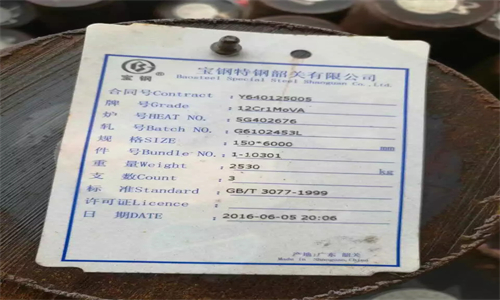 宝钢®
宝钢特钢韶关有限公司
Baosteel Special Steel Shaoguan Co., Ltd.
合同号Contract : Y640125005
牌 号Grade : 12Cr1MoVA
炉 号HEAT NO. : SG402676
轧 号Batch NO. : G6102453L
规 格SIZE : 150*6000 mm
件 号Bundle NO. : 1-10301
重 量Weight : 2530 kg
支 数Count : 3
标 准Standard : GB/T 3077-1999
许可证Licence :
日 期DATE : 2016-06-05 20:06
产地:广东 韶关
Made In Shaoguan,China